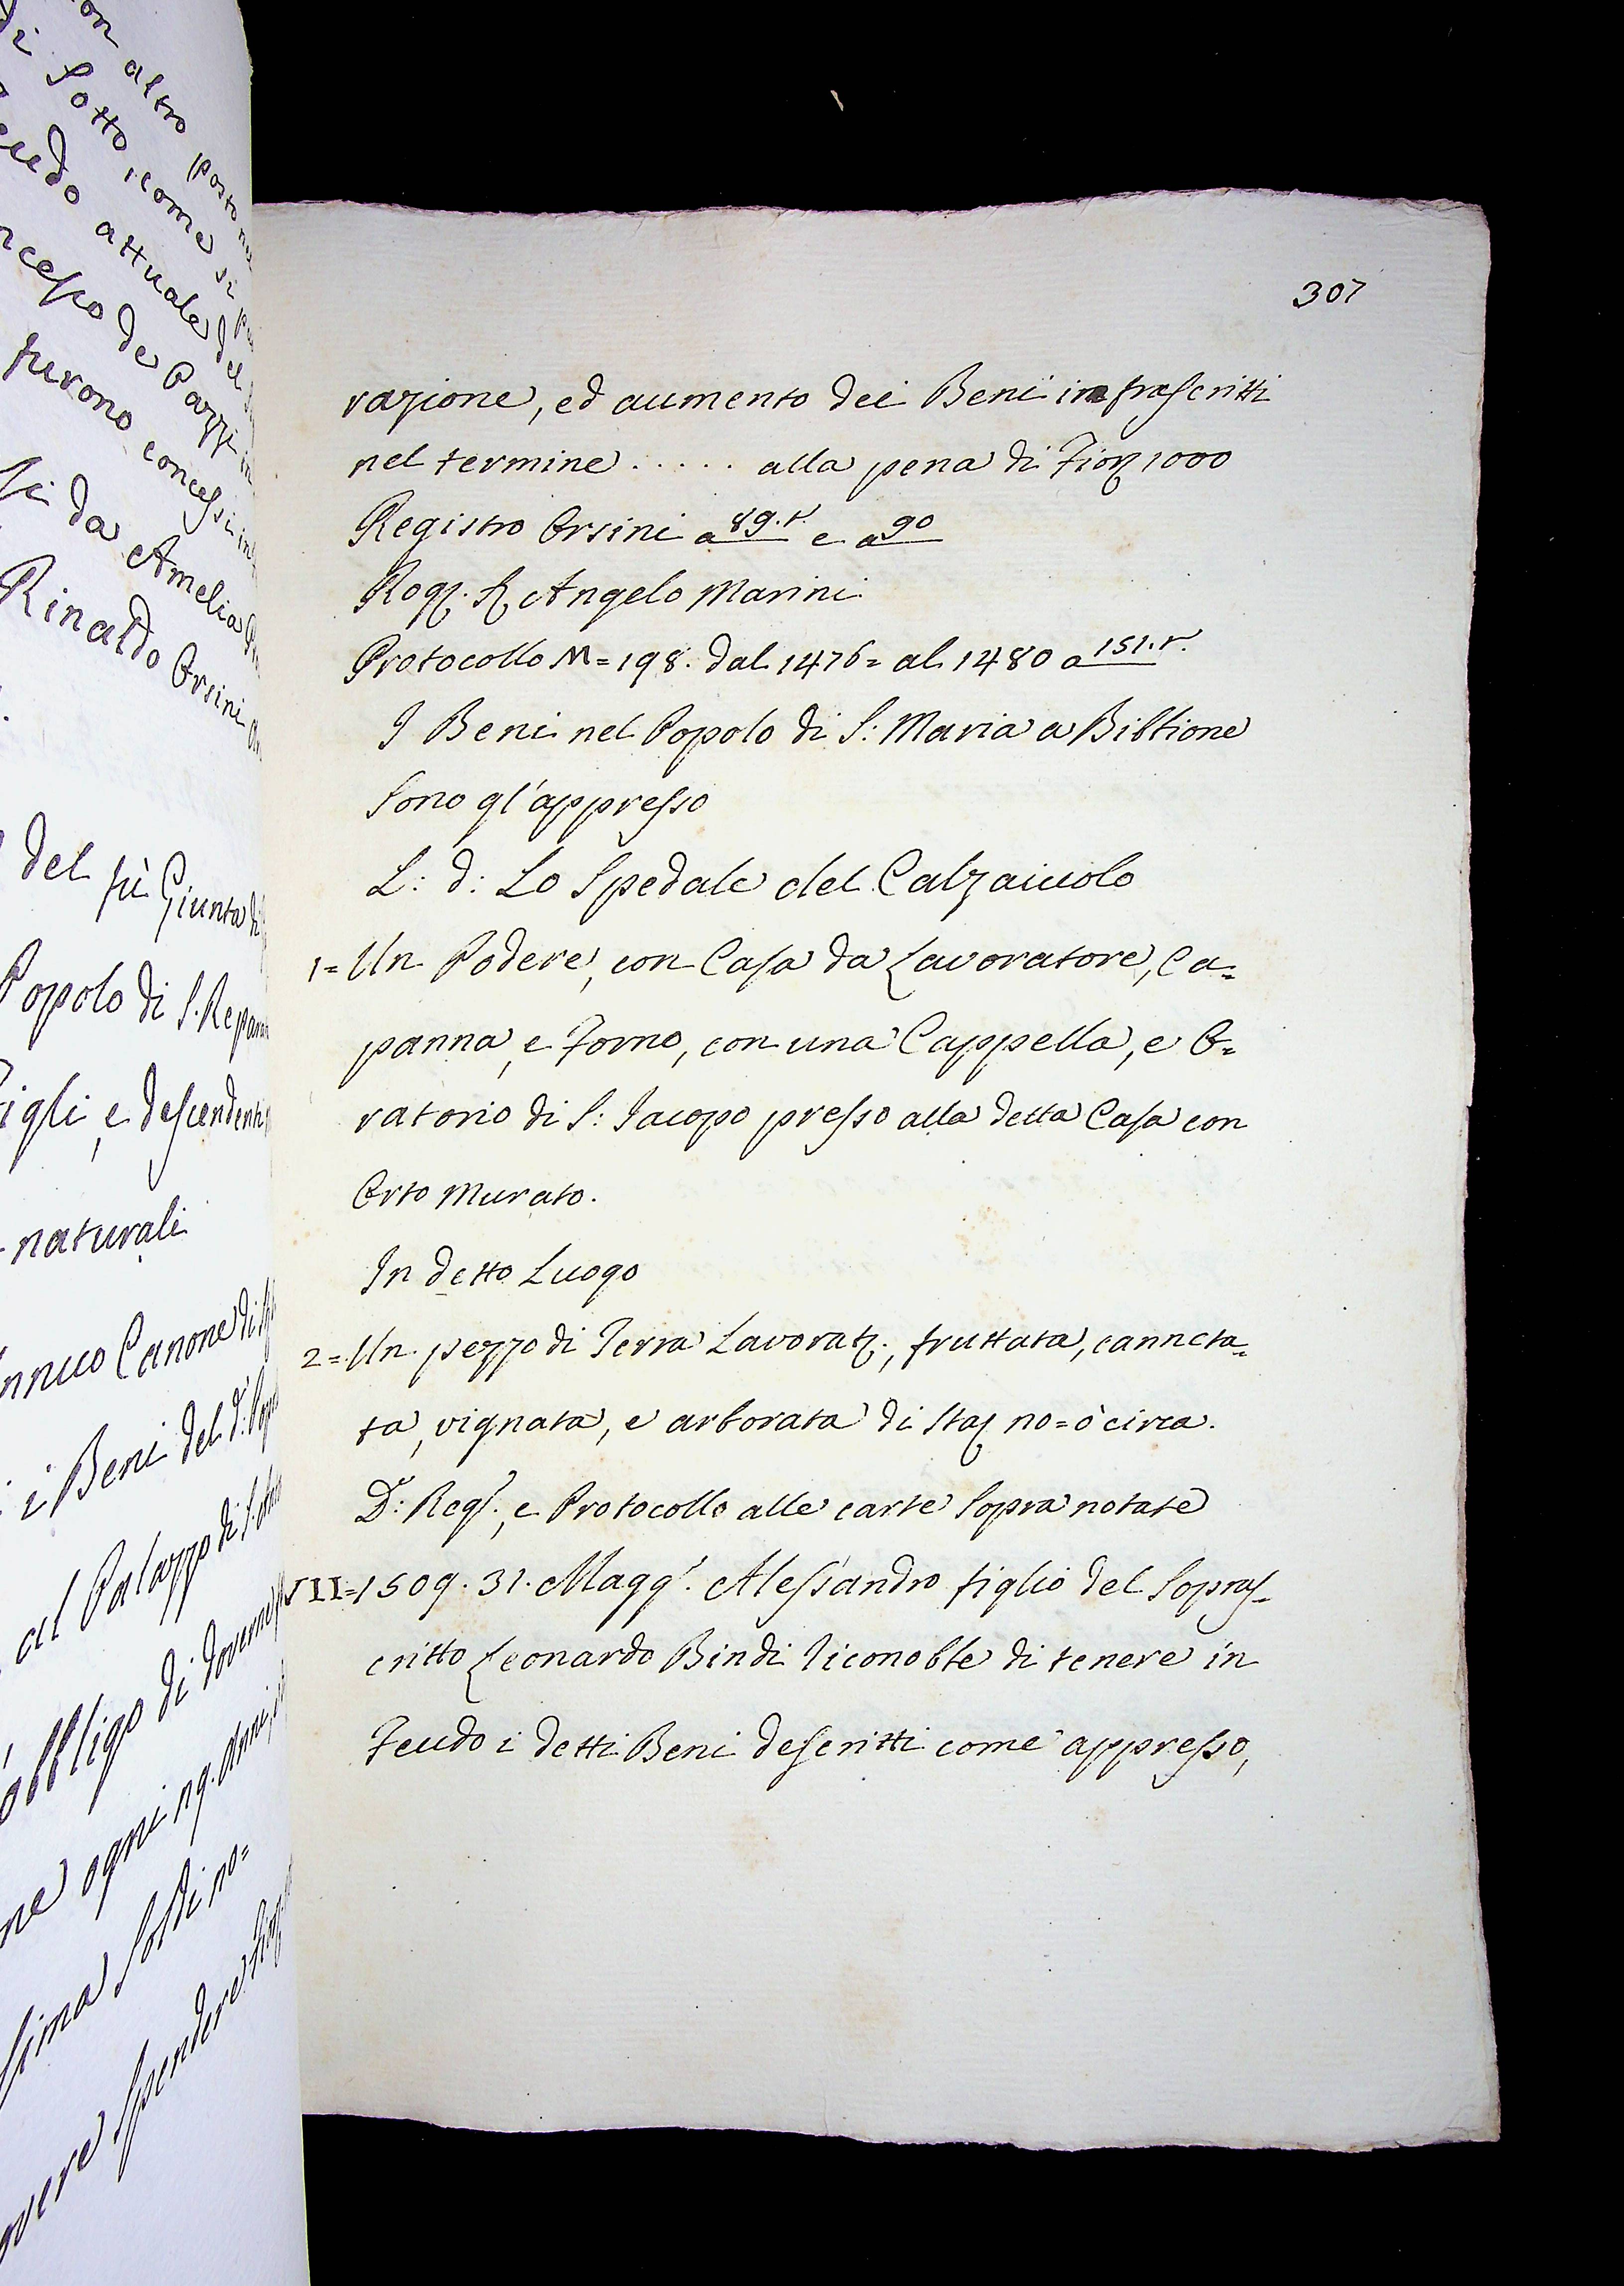 on altro posto
di Sotto, come si
eudo attuale del
ncesso de Pazzi in
furono concessi in
da Amelia
Rinaldo Orsini
del fù Giunta di
Popolo di S. Repara
Figli, e descendenti
naturali
nnuo Canone di
i Beni del d: Popo
al Palazzo di S.
obbligo di doverne
ne ogni 29. Anni,
sima Soldi no=
overe spendere fior
307
razione, ed aumento dei Beni infrascritti
nel termine ..... alla pena di Fior 1000
Registro Orsini a 89.t. e a 90
Rog. S. Angelo Marini
Protocollo N = 198. dal 1476 = al 1480 a 151.t.
I Beni nel Popolo di S: Maria a Bibbione
Sono gl'appresso
L: d: Lo Spedale del Calzaiuolo
1= Un Podere, con Casa da Lavoratore, Ca=
panna, e Forno, con una Cappella, e O=
ratorio di S: Jacopo presso alla detta Casa con
Orto Murato.
In detto Luogo
2= Un pezzo di Terra Lavorat., fruttata, canneta=
ta, vignata, e arborata di Sta no=ò circa.
D: Reg., e Protocollo alle carte Sopra notate
VII=1509. 31. Magg. Alessandro figlio del Sopras=
critto Leonardo Bindi riconobbe di tenere in
Feudo i detti Beni descritti come appresso,